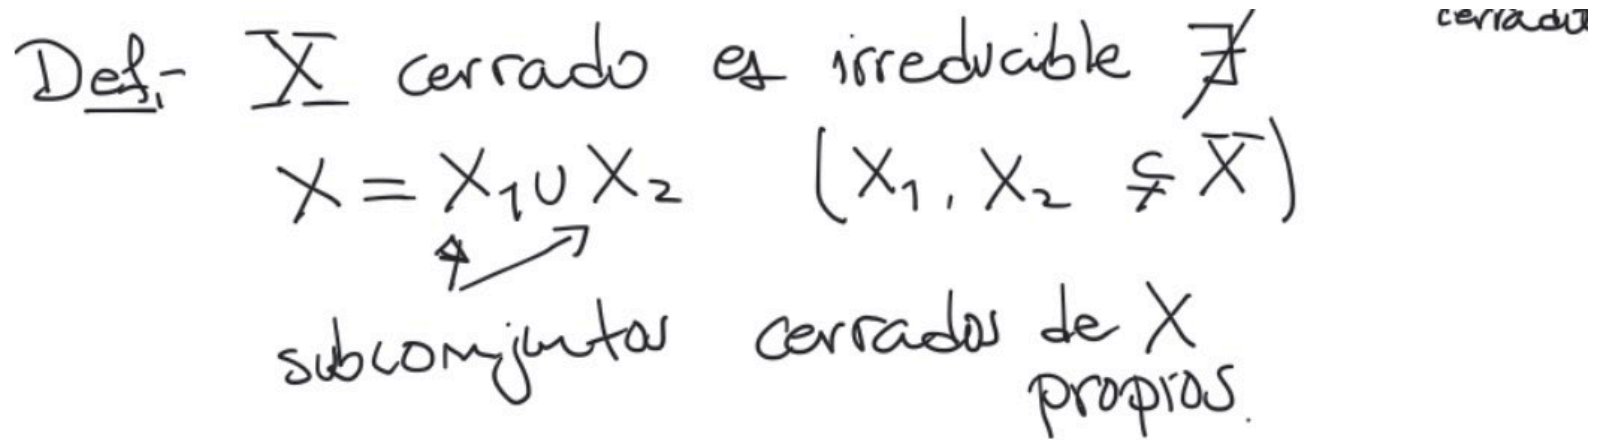 cerrado
Def.- X cerrado es irreducible ∄
X = X₁ ∪ X₂ (X₁, X₂ ⊊ X)
subconjuntos cerrados de X
propios.